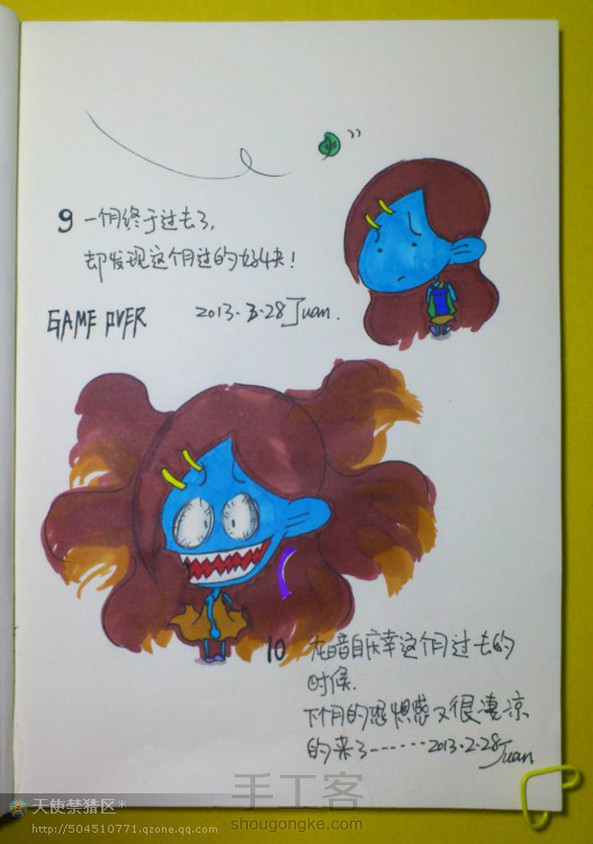 9 一个月终于过去了,
却发现这个月过的好快!
GAME OVER 2013.2.28 Juan.
10 在暗自庆幸这个月过去的
时候.
下个月的恐惧感又很凄凉
的来了------2013.2.28 Juan
手工客
shougongke.com
天使禁猎区*
http://504510771.qzone.qq.com